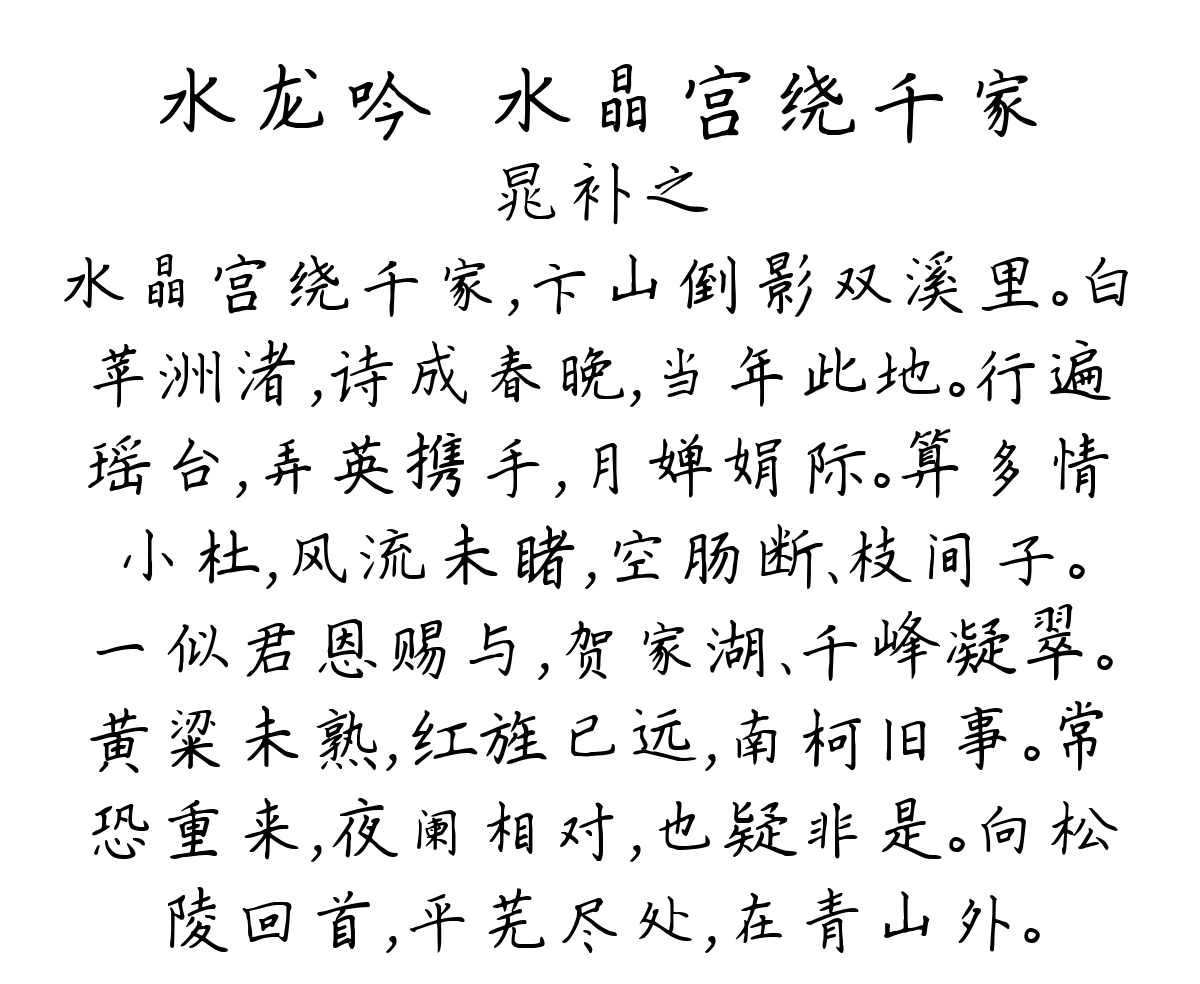 水龙吟 水晶宫绕千家
晁补之
水晶宫绕千家,卞山倒影双溪里。白
苹洲渚,诗成春晚,当年此地。行遍
瑶台,弄英携手,月婵娟际。算多情
小杜,风流未睹,空肠断、枝间子。
一似君恩赐与,贺家湖、千峰凝翠。
黄粱未熟,红旌已远,南柯旧事。常
恐重来,夜阑相对,也疑非是。向松
陵回首,平芜尽处,在青山外。